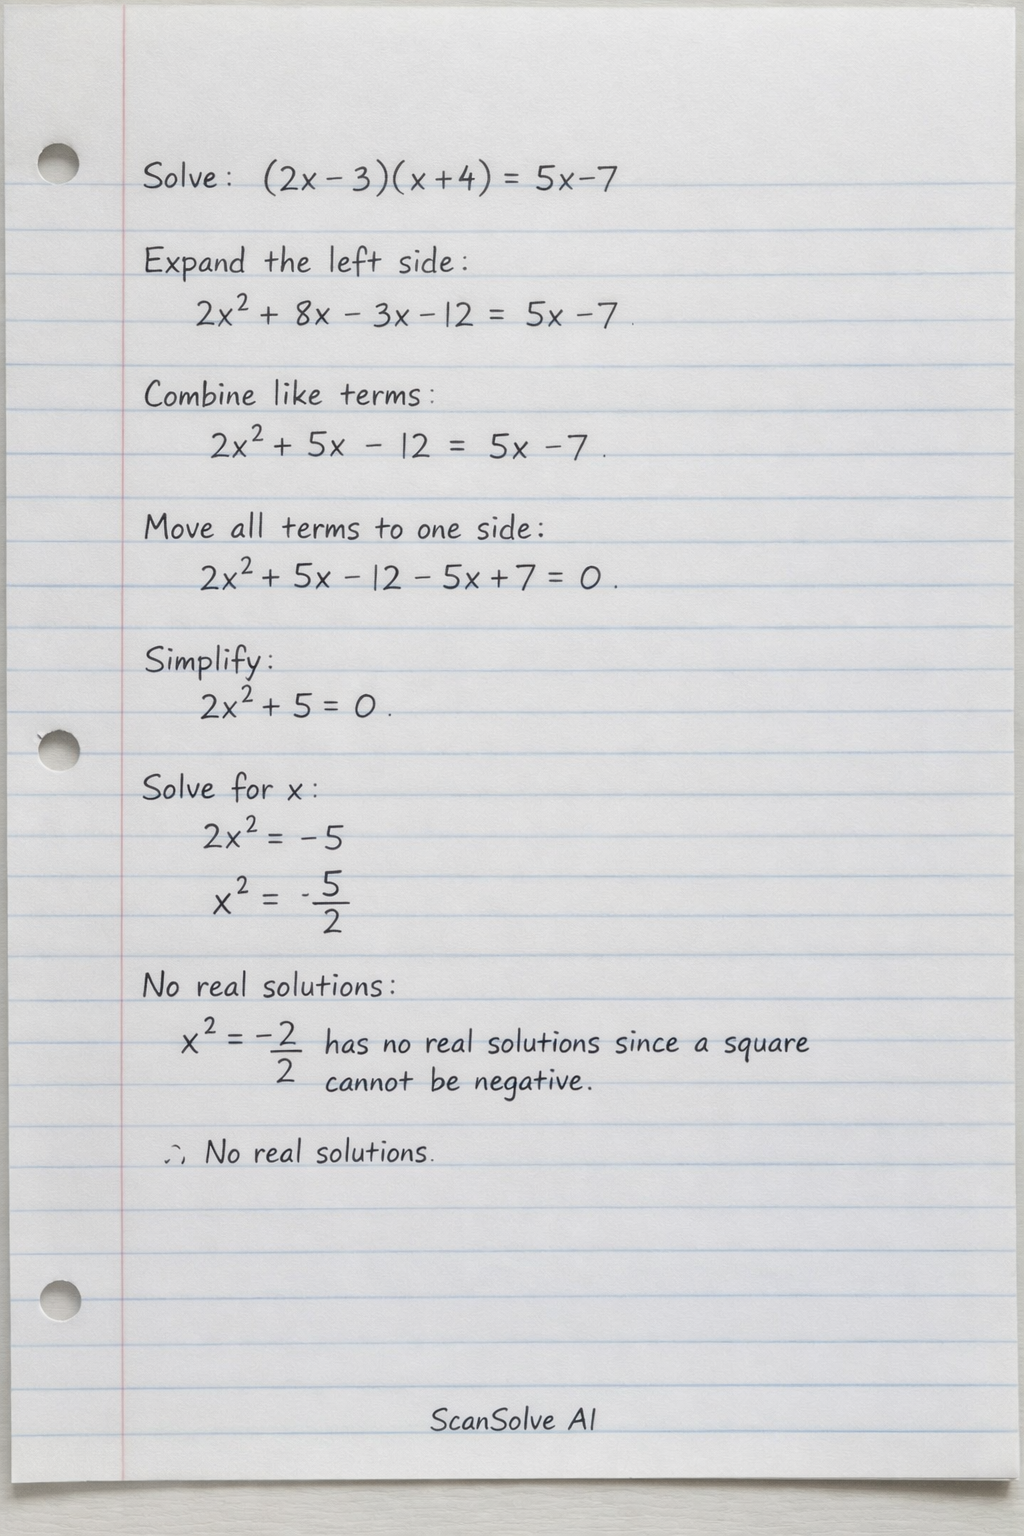 Solve: (2x − 3)(x + 4) = 5x − 7
Expand the left side:
2x² + 8x − 3x − 12 = 5x − 7.
Combine like terms:
2x² + 5x − 12 = 5x − 7.
Move all terms to one side:
2x² + 5x − 12 − 5x + 7 = 0.
Simplify:
2x² + 5 = 0.
Solve for x:
2x² = −5
x² = -5/2
No real solutions:
x² = −2/2 has no real solutions since a square
cannot be negative.
∴ No real solutions.
ScanSolve AI